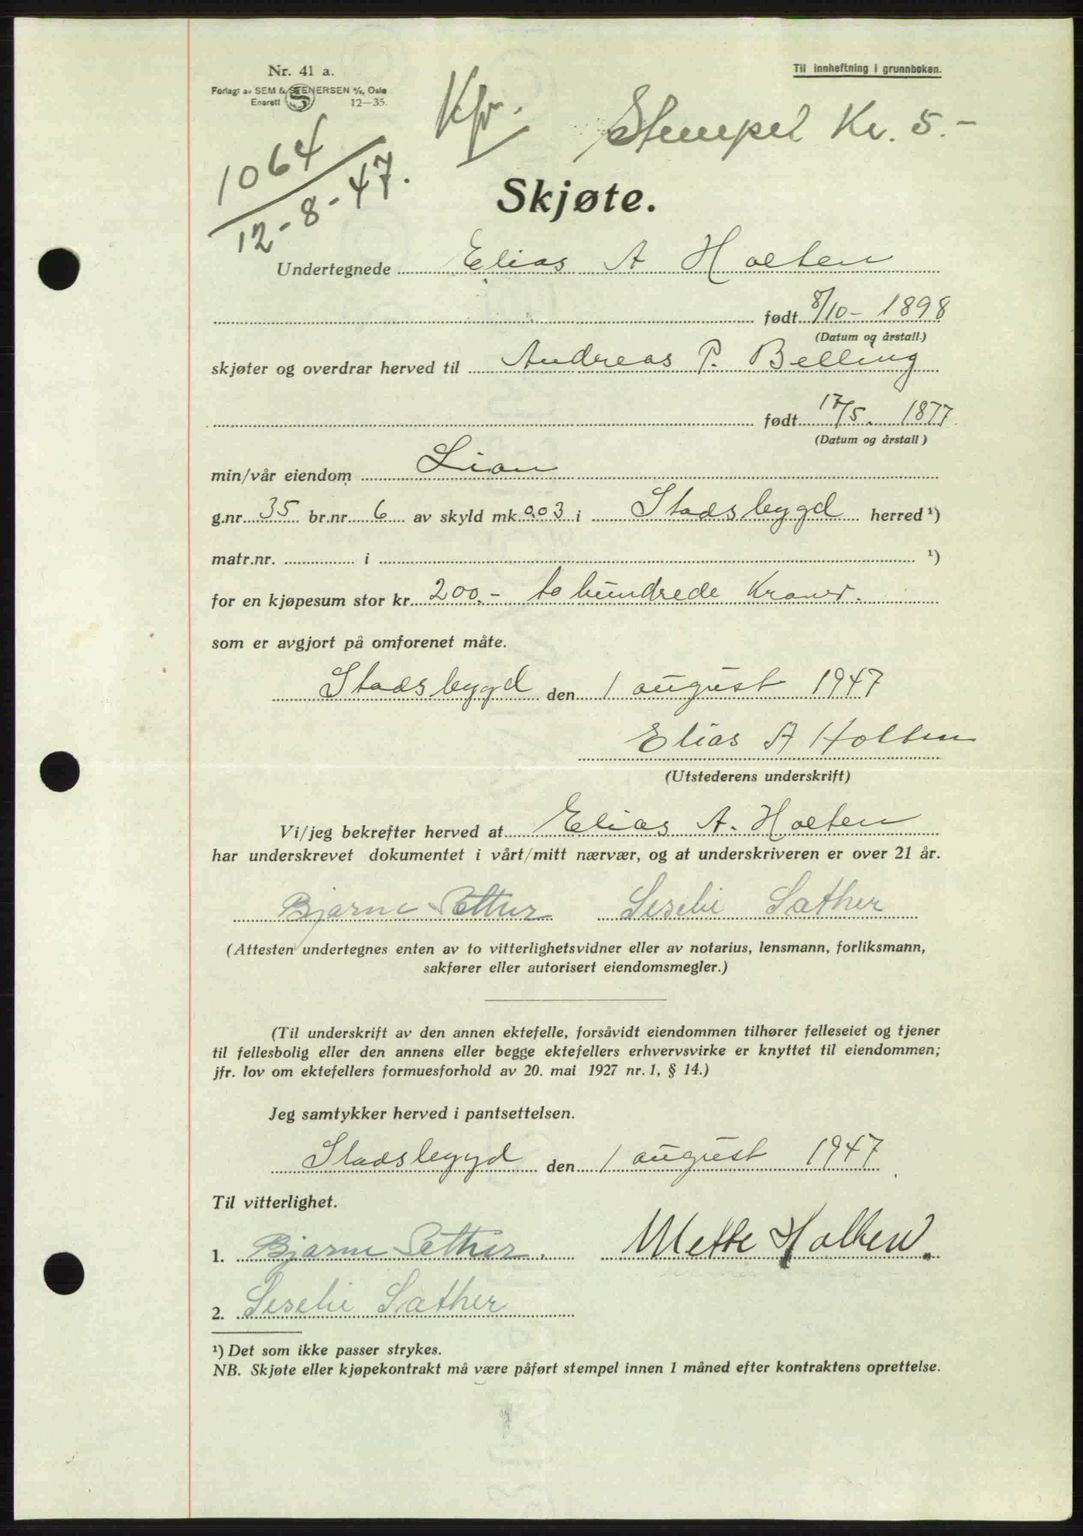 Nr. 41 a.
Til innheftning i grunnboken.
Forlagt av SEM & STENERSEN A/S, Oslo
Enerett 12—35.
Kfr.
Stempel Kr. 5.-
1064
12-8-47.
Skjøte.
Undertegnede Elias A Holten
født 8/10- 1898
(Datum og årstall.)
skjøter og overdrar herved til Andreas P. Belling
født 17/5. 1877
(Datum og årstall)
min/vår eiendom Lian
g.nr. 35 br.nr. 6 av skyld mk. 0.03 i Stadsbygd herred ¹)
matr.nr. i ¹)
for en kjøpesum stor kr. 200.- to hundrede Kroner.
som er avgjort på omforenet måte.
Stadsbygd den 1 august 1947
Elias A Holten
(Utstederens underskrift)
Vi/jeg bekrefter herved at Elias A. Holten
har underskrevet dokumentet i vårt/mitt nærvær, og at underskriveren er over 21 år.
Bjarne Sæther Seselie Sæther
(Attesten undertegnes enten av to vitterlighetsvidner eller av notarius, lensmann, forliksmann,
sakfører eller autorisert eiendomsmegler.)
(Til underskrift av den annen ektefelle, forsåvidt eiendommen tilhører felleseiet og tjener
til fellesbolig eller den annens eller begge ektefellers erhvervsvirke er knyttet til eiendommen;
jfr. lov om ektefellers formuesforhold av 20. mai 1927 nr. 1, § 14.)
Jeg samtykker herved i pantsettelsen.
Stadsbygd den 1 august 1947
Til vitterlighet.
1. Bjarne Sæther. Mette Holten.
2. Seselie Sæther
¹) Det som ikke passer strykes.
NB. Skjøte eller kjøpekontrakt må være påført stempel innen 1 måned efter kontraktens oprettelse.